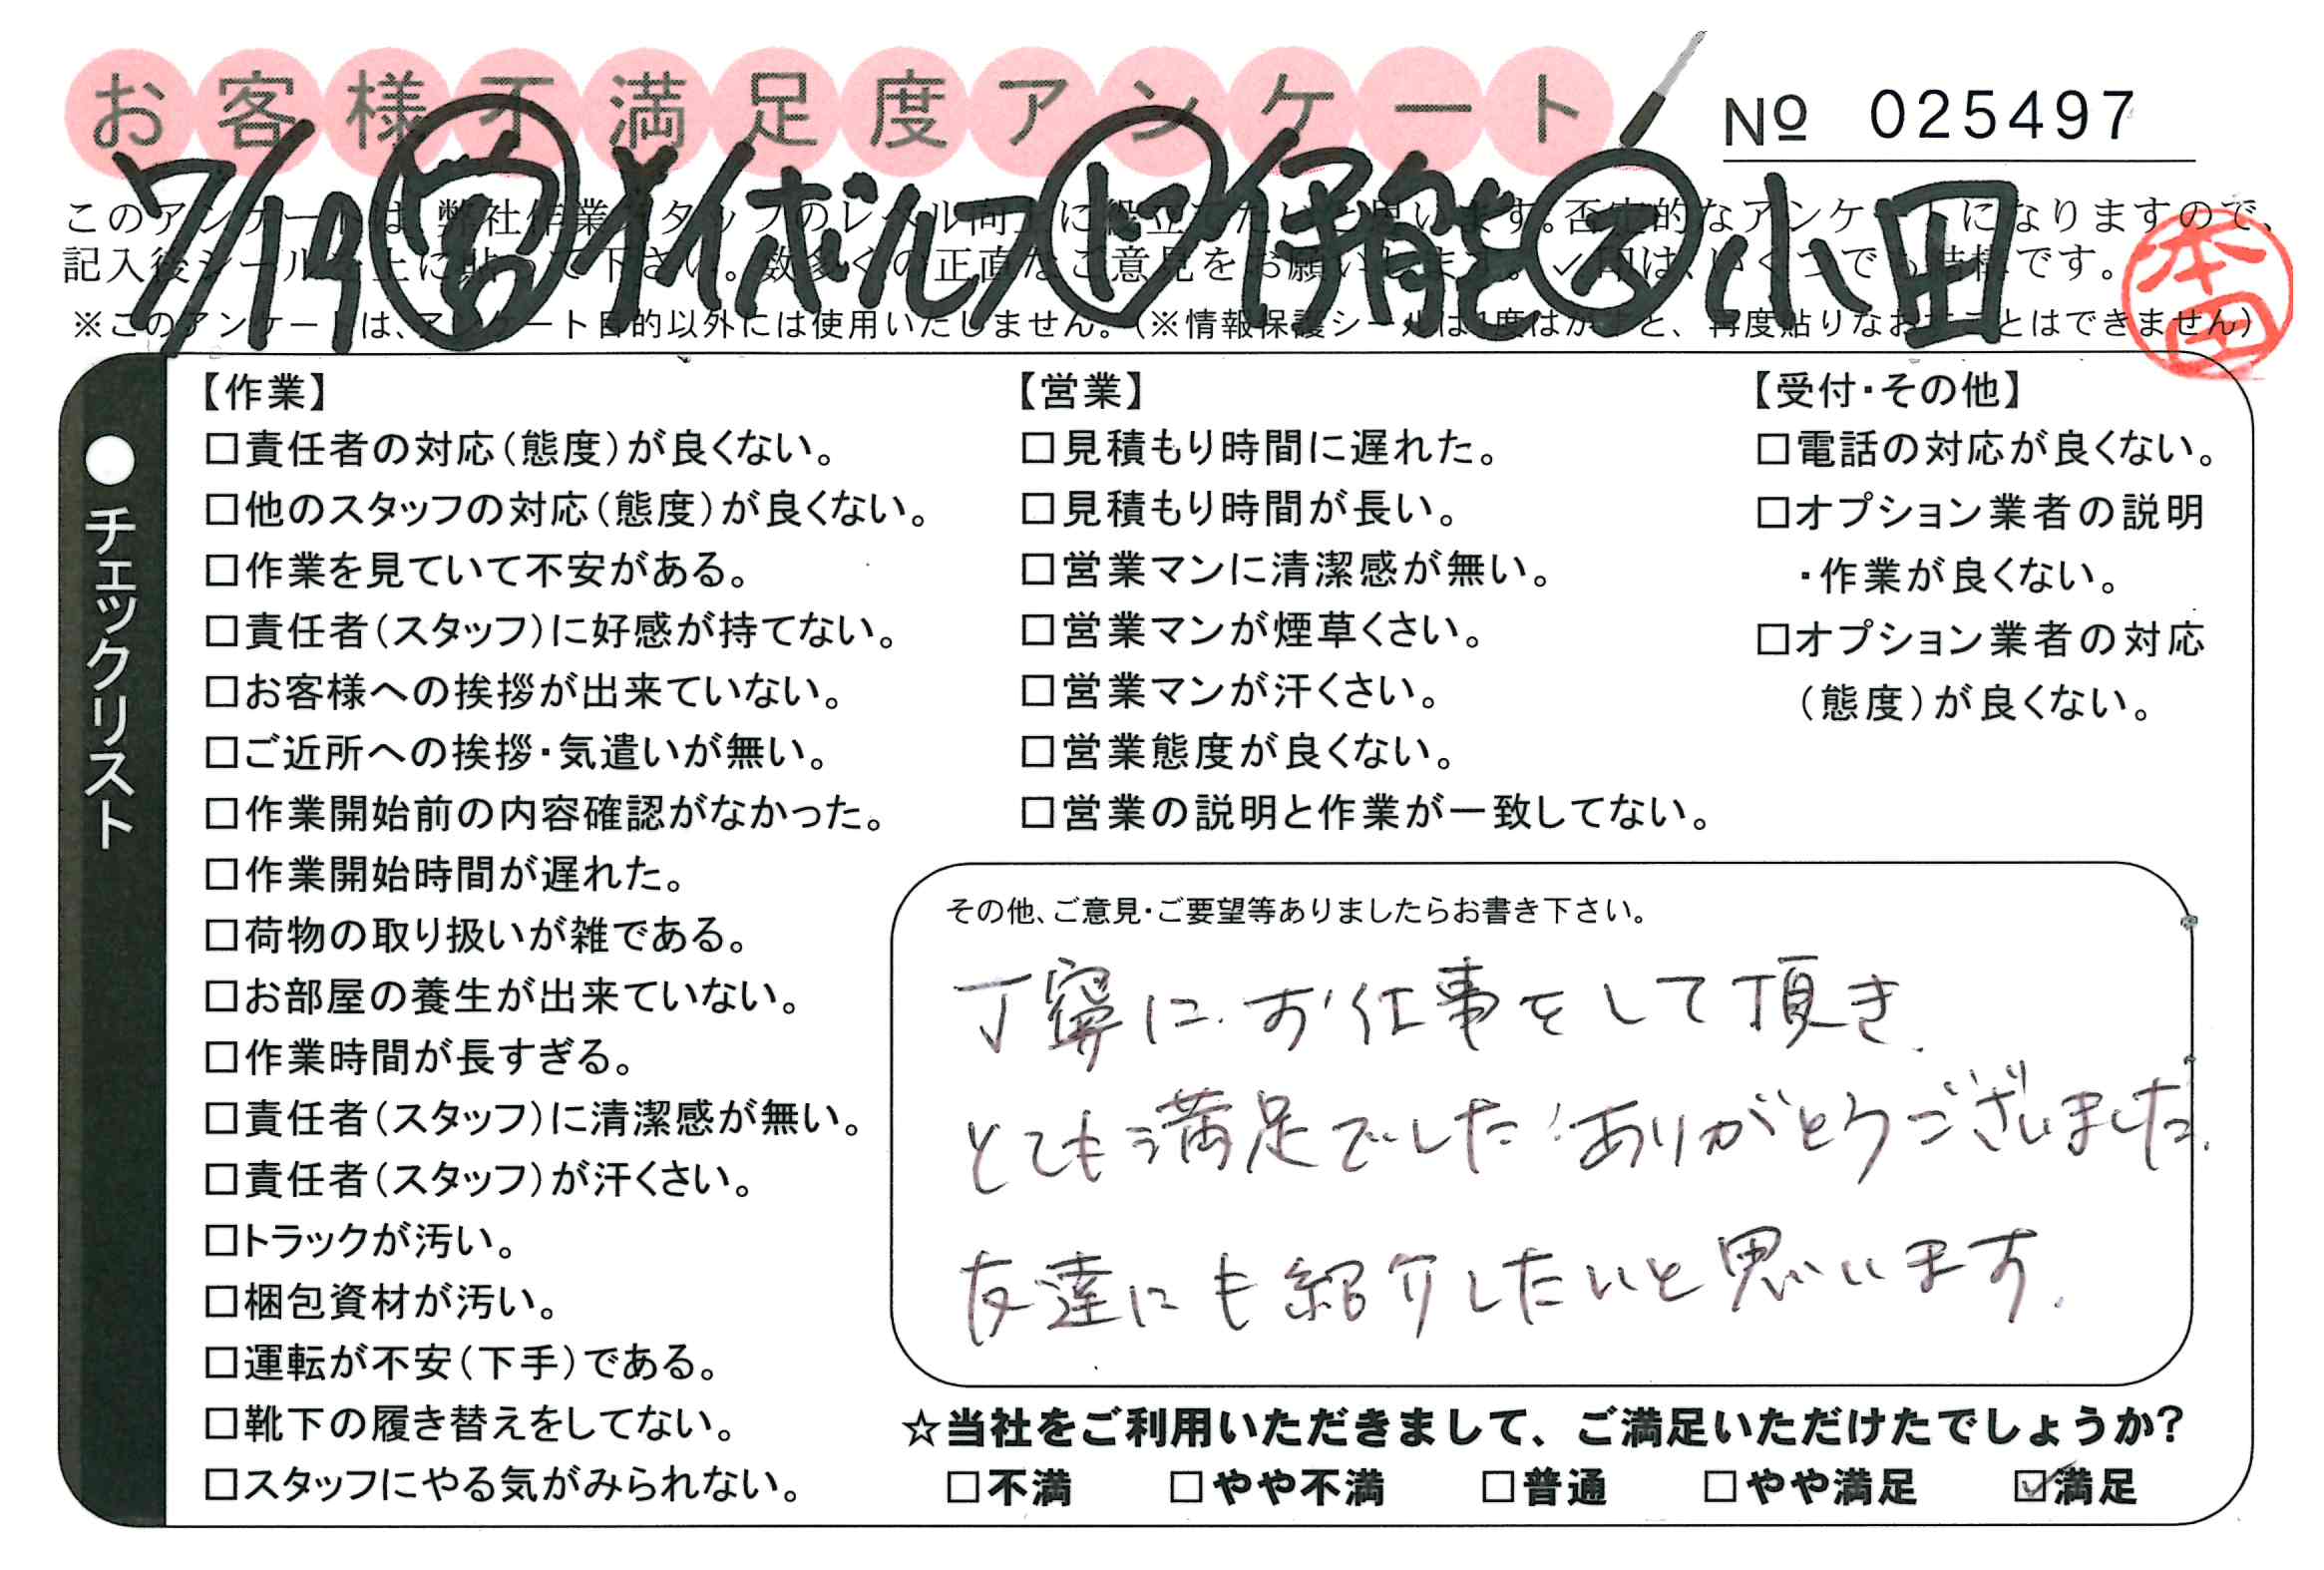 お客様不満足度アンケート
No 025497
7/19 営 メイボルス ド 伊能 ス 小田
このアンケートは、弊社作業スタッフのレベル向上に役立てたいと思います。否定的なアンケートになりますので、
記入後シールを上に貼って下さい。数多くの正直なご意見をお願いします。✓印は、いくつでも結構です。
※このアンケートは、アンケート目的以外には使用いたしません。(※情報保護シールは1度はがすと、再度貼りなおすことはできません)
本田
●チェックリスト
【作業】
□責任者の対応(態度)が良くない。
□他のスタッフの対応(態度)が良くない。
□作業を見ていて不安がある。
□責任者(スタッフ)に好感が持てない。
□お客様への挨拶が出来ていない。
□ご近所への挨拶・気遣いが無い。
□作業開始前の内容確認がなかった。
□作業開始時間が遅れた。
□荷物の取り扱いが雑である。
□お部屋の養生が出来ていない。
□作業時間が長すぎる。
□責任者(スタッフ)に清潔感が無い。
□責任者(スタッフ)が汗くさい。
□トラックが汚い。
□梱包資材が汚い。
□運転が不安(下手)である。
□靴下の履き替えをしてない。
□スタッフにやる気がみられない。
【営業】
□見積もり時間に遅れた。
□見積もり時間が長い。
□営業マンに清潔感が無い。
□営業マンが煙草くさい。
□営業マンが汗くさい。
□営業態度が良くない。
□営業の説明と作業が一致してない。
【受付・その他】
□電話の対応が良くない。
□オプション業者の説明
・作業が良くない。
□オプション業者の対応
(態度)が良くない。
その他、ご意見・ご要望等ありましたらお書き下さい。
丁寧にお仕事をして頂き、
とても満足でした!ありがとうございました。
友達にも紹介したいと思います。
☆当社をご利用いただきまして、ご満足いただけたでしょうか?
□不満 □やや不満 □普通 □やや満足 ☑満足